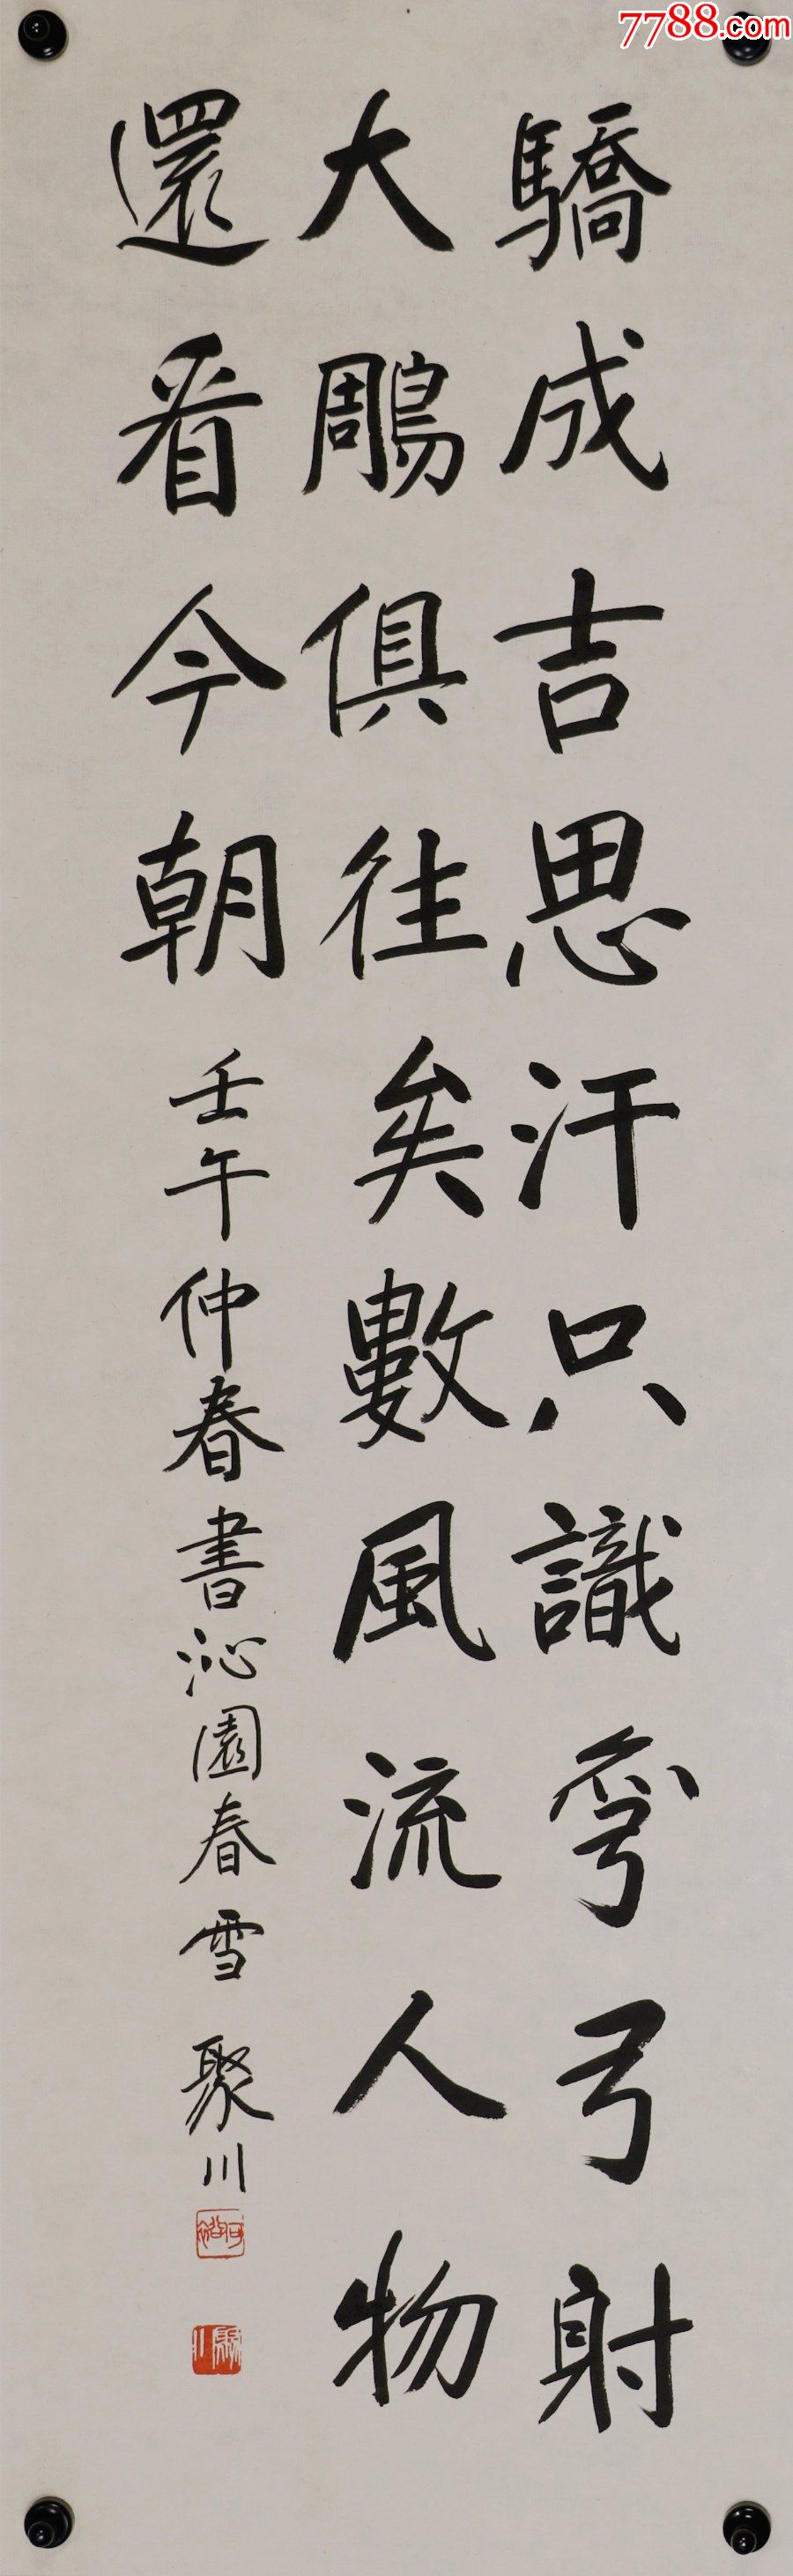 7788.com
驕成吉思汗只識彎弓射
大鵰俱往矣數風流人物
還看今朝
壬午仲春書沁園春雪 聚川